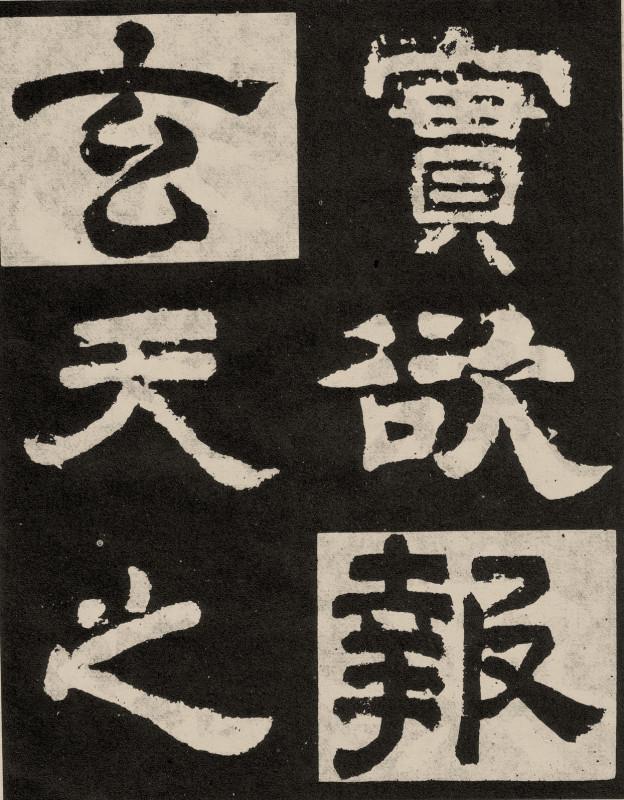 實欲報
玄天之